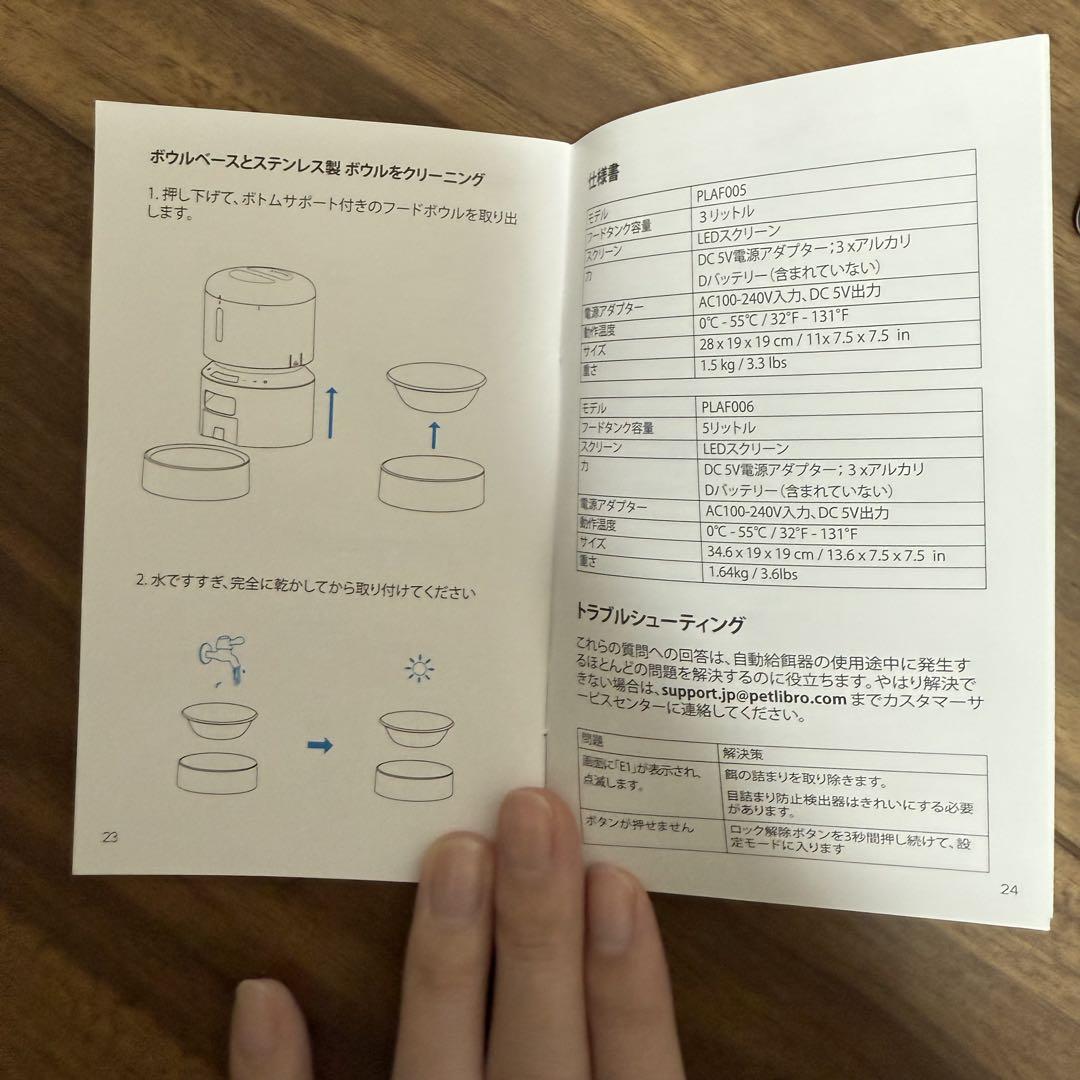 ボウルベースとステンレス製 ボウルをクリーニング
1. 押し下げて、ボトムサポート付きのフードボウルを取り出
します。
2. 水ですすぎ、完全に乾かしてから取り付けてください
23
仕様書
モデル PLAF005
フードタンク容量 3リットル
スクリーン LEDスクリーン
力 DC 5V電源アダプター；3 xアルカリ
Dバッテリー（含まれていない）
電源アダプター AC100-240V入力、DC 5V出力
動作温度 0℃ - 55℃ / 32°F - 131°F
サイズ 28 x 19 x 19 cm / 11x 7.5 x 7.5 in
重さ 1.5 kg / 3.3 lbs
モデル PLAF006
フードタンク容量 5リットル
スクリーン LEDスクリーン
力 DC 5V電源アダプター；3 xアルカリ
Dバッテリー（含まれていない）
電源アダプター AC100-240V入力、DC 5V出力
動作温度 0℃ - 55℃ / 32°F - 131°F
サイズ 34.6 x 19 x 19 cm / 13.6 x 7.5 x 7.5 in
重さ 1.64kg / 3.6lbs
トラブルシューティング
これらの質問への回答は、自動給餌器の使用途中に発生す
るほとんどの問題を解決するのに役立ちます。やはり解決で
きない場合は、support.jp@petlibro.com までカスタマーサ
ービスセンターに連絡してください。
問題 解決策
画面に「E1」が表示され、 餌の詰まりを取り除きます。
点滅します。 目詰まり防止検出器はきれいにする必要
があります。
ボタンが押せません ロック解除ボタンを3秒間押し続けて、設
定モードに入ります
24